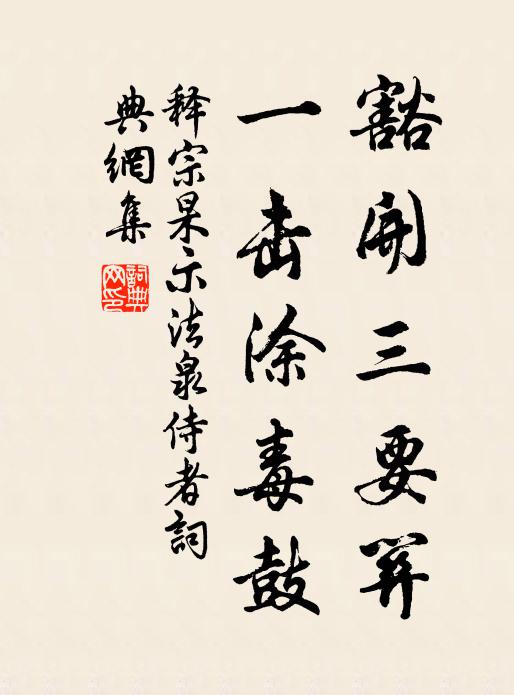 豁開三要關
一击涂毒鼓
释宗杲示法泉侍者詞
典網集
詞典网印